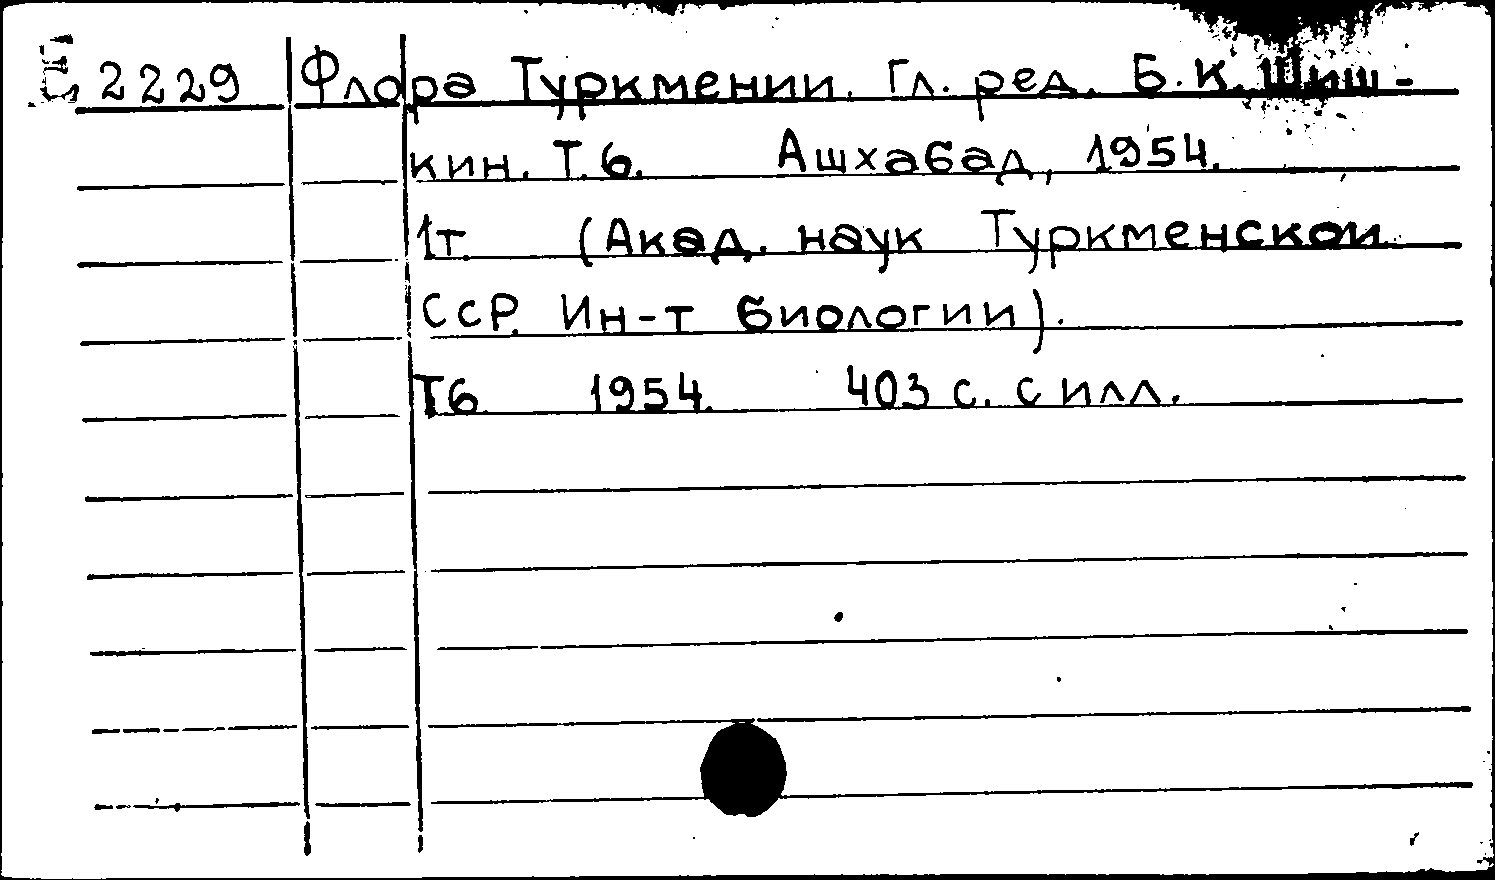 Е 2229 Флора Туркмении. Гл. ред. Б.К. Шиш-
кин. Т.6. Ашхабад, 1954.
1т. (Акад. наук Туркменской
ССР. Ин-т биологии).
Т6 1954. 403 с. с илл.